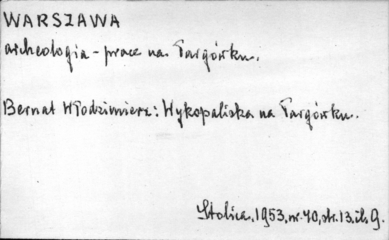 WARSZAWA
archeologia - prace na Targówku.
Bernat Włodzimierz: Wykopaliska na Targówku.
Stolica, 1953, nr. 40, str. 13, il. 9.